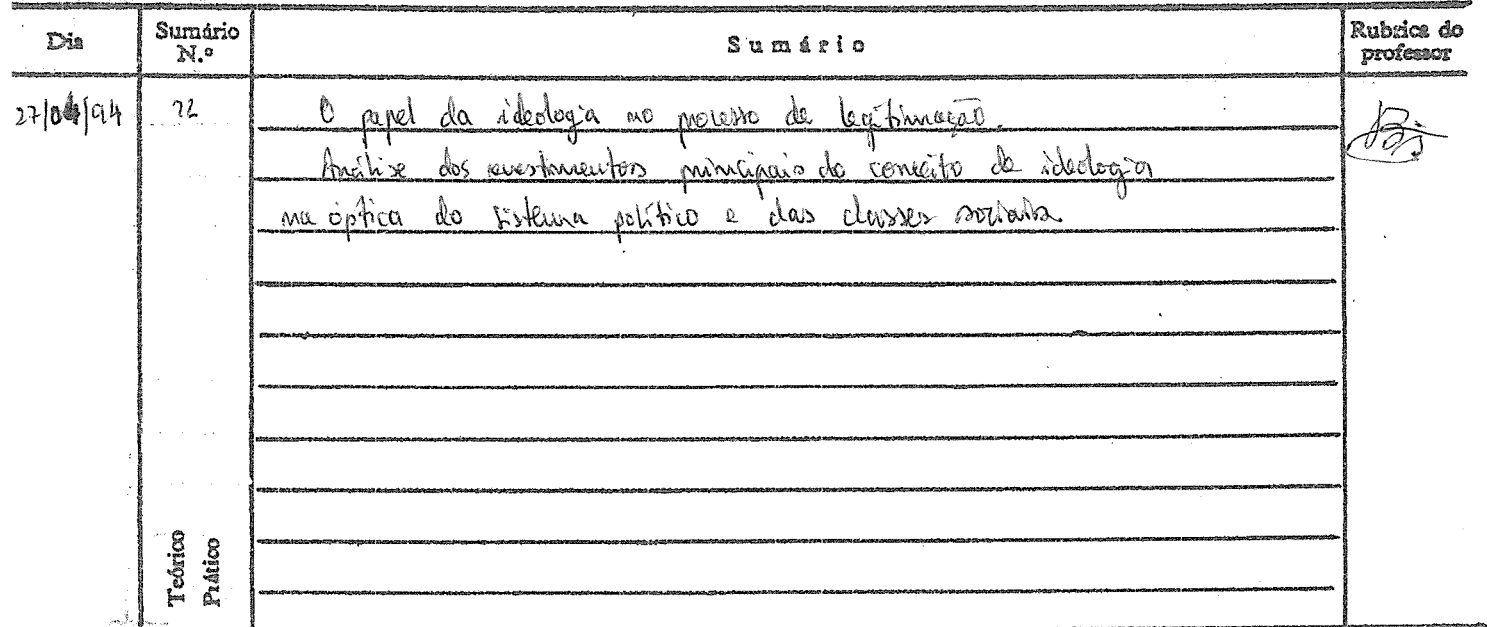 Dia Sumário N.º Sumário Rubrica do professor
27/04/94 22 O papel da ideologia no processo de legitimação.
Análise dos investimentos principais do conceito de ideologia
na óptica do sistema político e das classes sociais.
Teórico
Prático